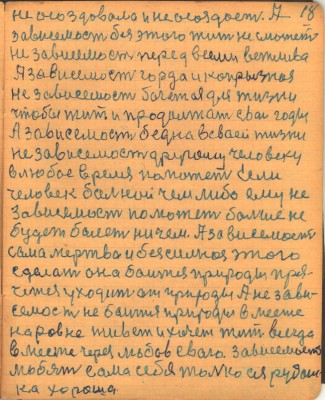 не опоздовала и не опоздает. А 18
зависемость без этого жит не сможет
не зависемост перед всеми вежлива
А зависемост горда и копрызная
не зависемост богатая для жизни
чтобы жит и продлжат свои годы
А зависемост бедна в своей жизни
не зависемост другому человеку
в любое время поможет если
человек балной чем либо ему не
зависемост поможет болше не
будет болет ничем. А зависемост
сама мертва и безсилная этого
сделат она боится природы пря-
чется уходит от природы А не зави-
семост не боится природы вместе
наровне живет и хочет жит всегда
вместе через любов свою зависемость
любят сама себя толко ся рубаш-
ка хороша